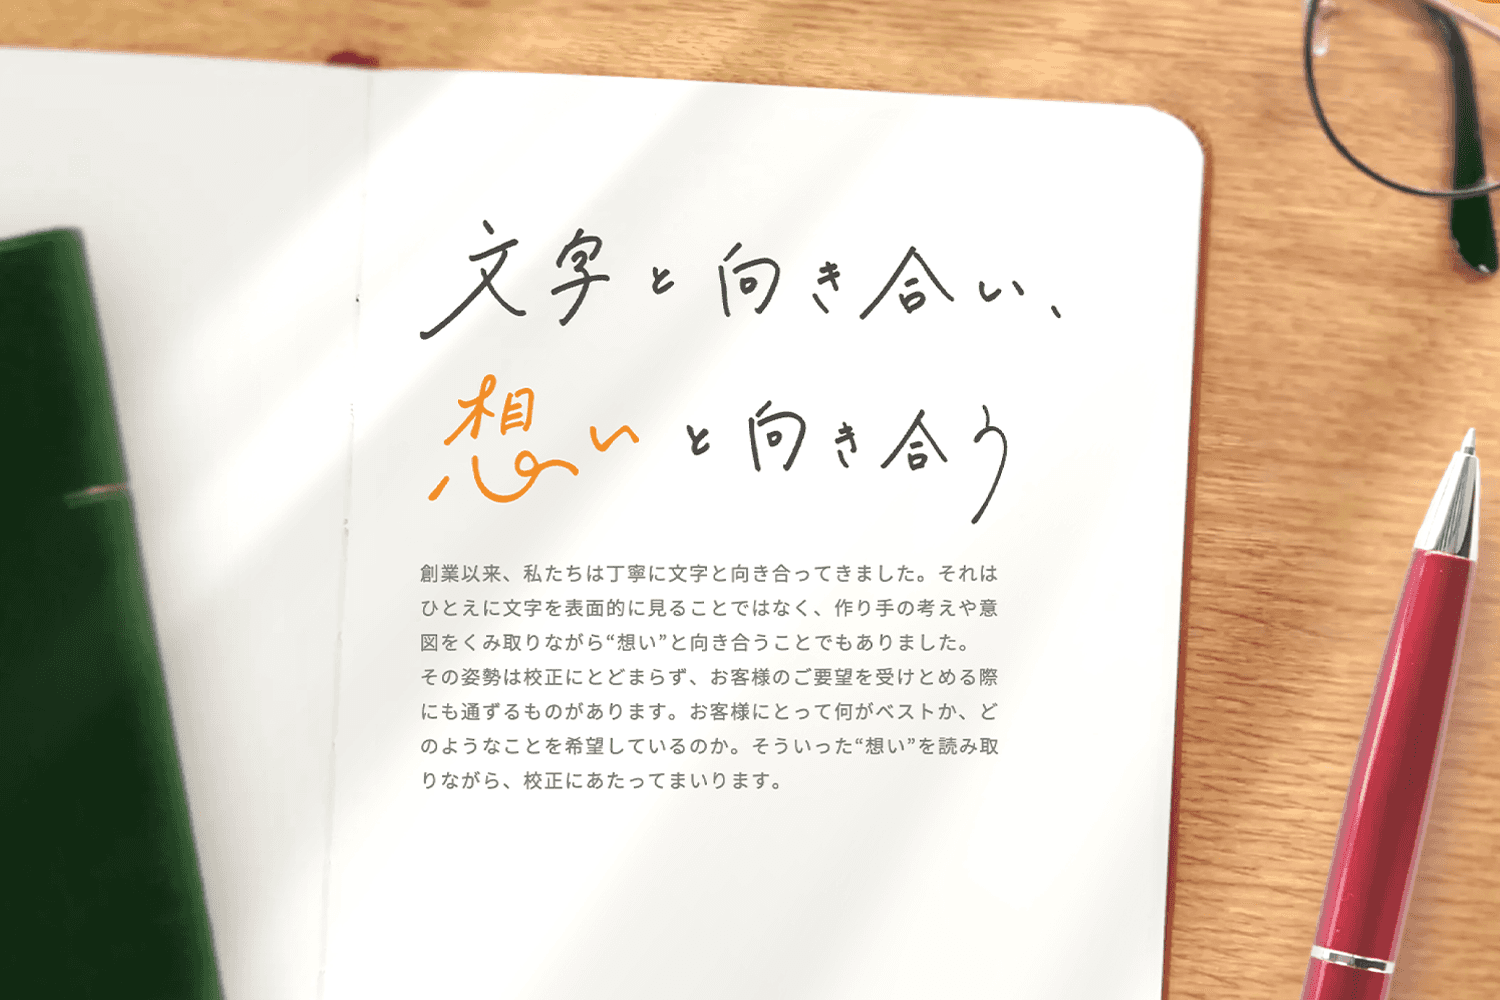 文字と向き合い、
想いと向き合う
創業以来、私たちは丁寧に文字と向き合ってきました。それは
ひとえに文字を表面的に見ることではなく、作り手の考えや意
図をくみ取りながら“想い”と向き合うことでもありました。
その姿勢は校正にとどまらず、お客様のご要望を受けとめる際
にも通ずるものがあります。お客様にとって何がベストか、ど
のようなことを希望しているのか。そういった“想い”を読み取
りながら、校正にあたってまいります。